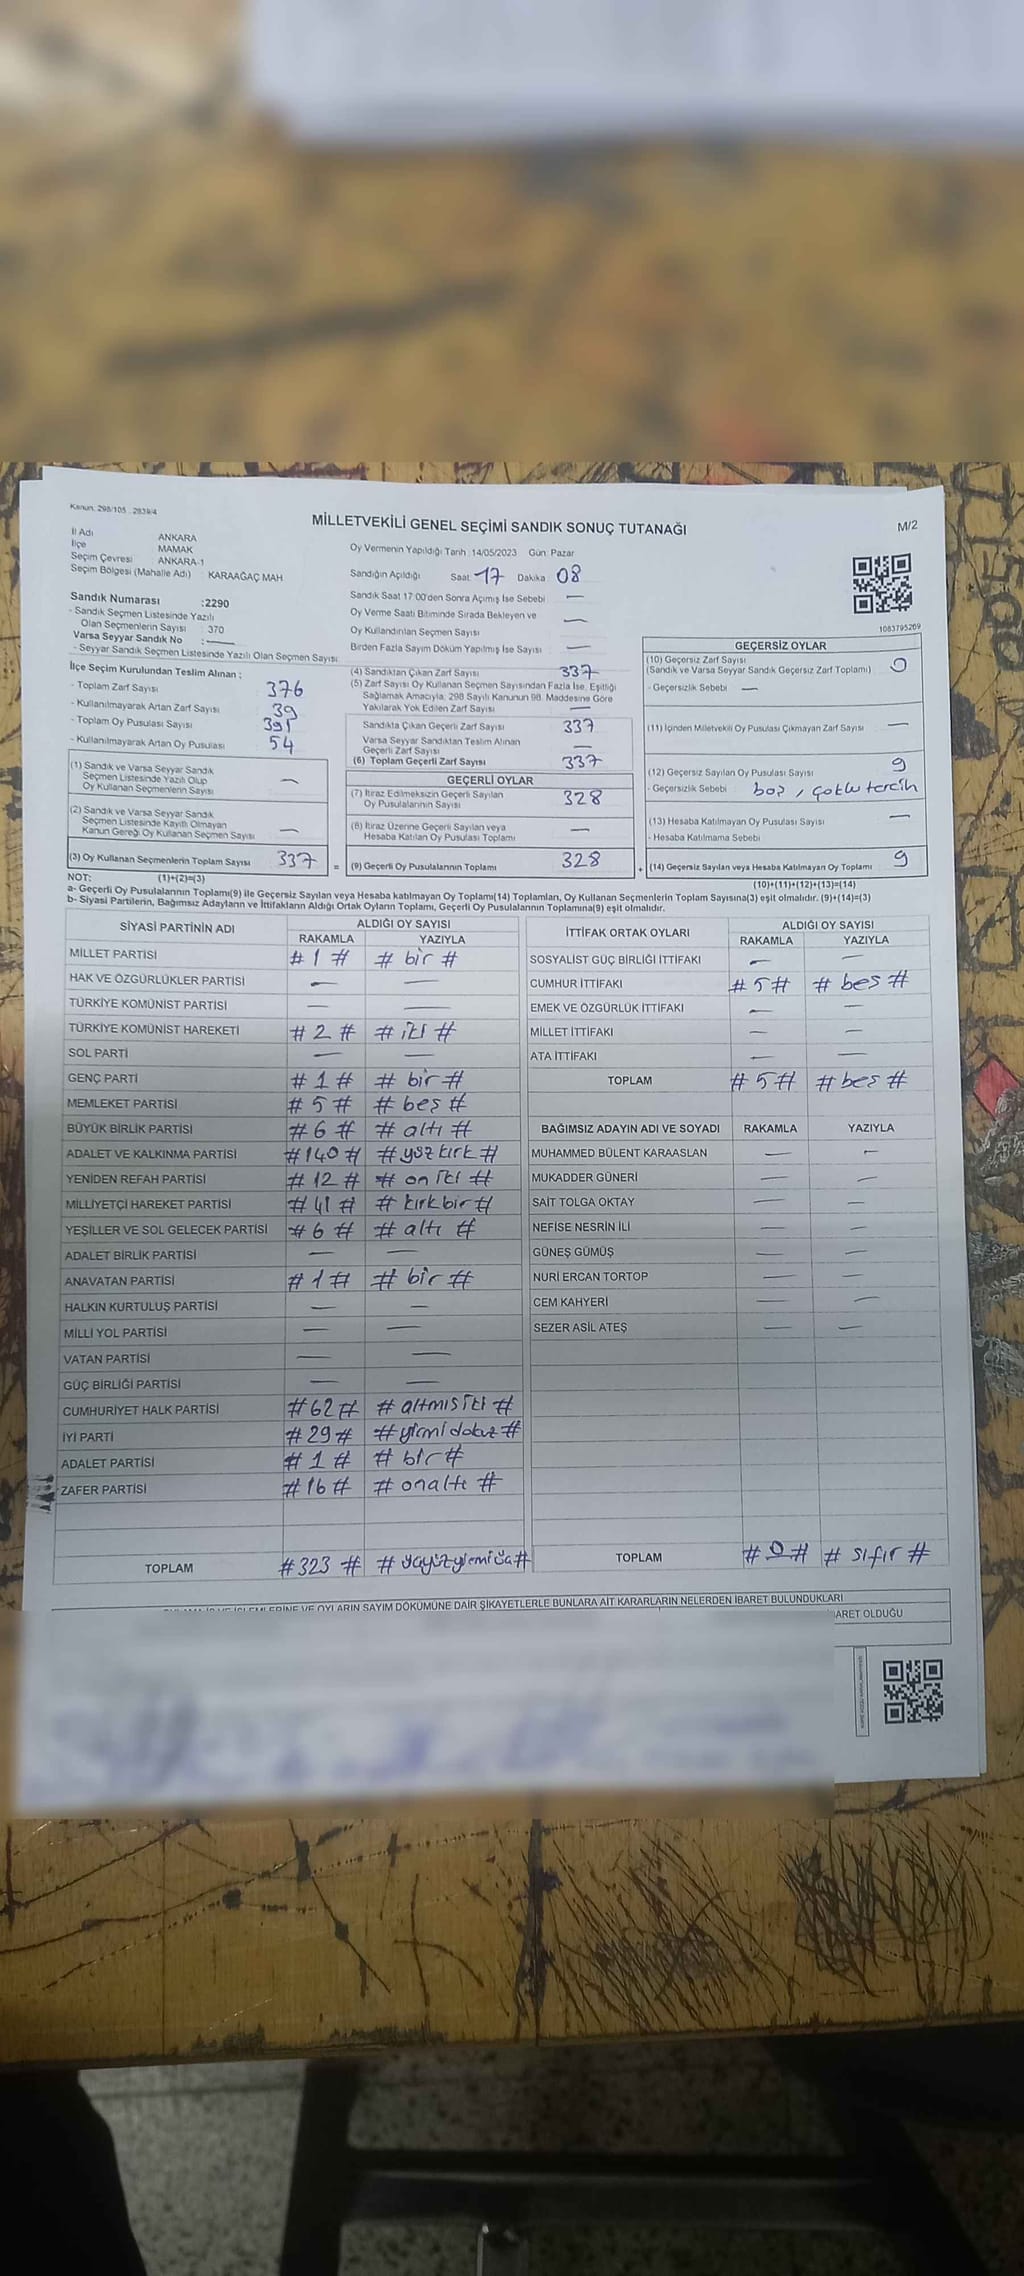 Kanun: 298/105 , 2839/4
MİLLETVEKİLİ GENEL SEÇİMİ SANDIK SONUÇ TUTANAĞI
M/2
İl Adı ANKARA
İlçe MAMAK
Seçim Çevresi ANKARA-1
Seçim Bölgesi (Mahalle Adı) KARAAĞAÇ MAH
Oy Vermenin Yapıldığı Tarih :14/05/2023 Gün: Pazar
Sandığın Açıldığı Saat: 17 Dakika 08
Sandık Saat 17:00'den Sonra Açımış İse Sebebi —
Oy Verme Saati Bitiminde Sırada Bekleyen ve
Oy Kullandırılan Seçmen Sayısı —
Birden Fazla Sayım Döküm Yapılmış İse Sayısı —
1083795209
Sandık Numarası :2290
- Sandık Seçmen Listesinde Yazılı
Olan Seçmenlerin Sayısı : 370
Varsa Seyyar Sandık No : —
- Seyyar Sandık Seçmen Listesinde Yazılı Olan Seçmen Sayısı:
İlçe Seçim Kurulundan Teslim Alınan ;
- Toplam Zarf Sayısı 376
- Kullanılmayarak Artan Zarf Sayısı 39
- Toplam Oy Pusulası Sayısı 391
- Kullanılmayarak Artan Oy Pusulası 54
(1) Sandık ve Varsa Seyyar Sandık
Seçmen Listesinde Yazılı Olup
Oy Kullanan Seçmenlerin Sayısı —
(2) Sandık ve Varsa Seyyar Sandık
Seçmen Listesinde Kayıtlı Olmayan
Kanun Gereği Oy Kullanan Seçmen Sayısı —
(3) Oy Kullanan Seçmenlerin Toplam Sayısı 337
(4) Sandıktan Çıkan Zarf Sayısı 337
(5) Zarf Sayısı Oy Kullanan Seçmen Sayısından Fazla İse, Eşitliği
Sağlamak Amacıyla; 298 Sayılı Kanunun 98. Maddesine Göre
Yakılarak Yok Edilen Zarf Sayısı —
Sandıkta Çıkan Geçerli Zarf Sayısı 337
Varsa Seyyar Sandıktan Teslim Alınan
Geçerli Zarf Sayısı —
(6) Toplam Geçerli Zarf Sayısı 337
GEÇERLİ OYLAR
(7) İtiraz Edilmeksizin Geçerli Sayılan
Oy Pusulalarının Sayısı 328
(8) İtiraz Üzerine Geçerli Sayılan veya
Hesaba Katılan Oy Pusulası Toplamı —
= (9) Geçerli Oy Pusulalarının Toplamı 328
GEÇERSİZ OYLAR
(10) Geçersiz Zarf Sayısı
(Sandık ve Varsa Seyyar Sandık Geçersiz Zarf Toplamı)
- Geçersizlik Sebebi —
(11) İçinden Milletvekili Oy Pusulası Çıkmayan Zarf Sayısı —
(12) Geçersiz Sayılan Oy Pusulası Sayısı 9
- Geçersizlik Sebebi boş, çoklu tercih
(13) Hesaba Katılmayan Oy Pusulası Sayısı —
- Hesaba Katılmama Sebebi
+ (14) Geçersiz Sayılan veya Hesaba Katılmayan Oy Toplamı 9
NOT: (1)+(2)=(3)
(10)+(11)+(12)+(13)=(14)
a- Geçerli Oy Pusulalarının Toplamı(9) ile Geçersiz Sayılan veya Hesaba katılmayan Oy Toplamı(14) Toplamları, Oy Kullanan Seçmenlerin Toplam Sayısına(3) eşit olmalıdır. (9)+(14)=(3)
b- Siyasi Partilerin, Bağımsız Adayların ve İttifakların Aldığı Ortak Oyların Toplamı, Geçerli Oy Pusulalarının Toplamına(9) eşit olmalıdır.
SİYASİ PARTİNİN ADI ALDIĞI OY SAYISI
RAKAMLA YAZIYLA
MİLLET PARTİSİ # 1 # # bir #
HAK VE ÖZGÜRLÜKLER PARTİSİ — —
TÜRKİYE KOMÜNİST PARTİSİ — —
TÜRKİYE KOMÜNİST HAREKETİ # 2 # # iki #
SOL PARTİ — —
GENÇ PARTİ # 1 # # bir #
MEMLEKET PARTİSİ # 5 # # beş #
BÜYÜK BİRLİK PARTİSİ # 6 # # altı #
ADALET VE KALKINMA PARTİSİ #140# #yüz kırk #
YENİDEN REFAH PARTİSİ # 12 # # on iki #
MİLLİYETÇİ HAREKET PARTİSİ # 41 # # kırkbir #
YEŞİLLER VE SOL GELECEK PARTİSİ # 6 # # altı #
ADALET BİRLİK PARTİSİ — —
ANAVATAN PARTİSİ # 1 # # bir #
HALKIN KURTULUŞ PARTİSİ — —
MİLLİ YOL PARTİSİ — —
VATAN PARTİSİ — —
GÜÇ BİRLİĞİ PARTİSİ — —
CUMHURİYET HALK PARTİSİ #62# # altmış iki #
İYİ PARTİ #29# #yirmi dokuz #
ADALET PARTİSİ # 1 # # bir #
ZAFER PARTİSİ #16# # onaltı #
TOPLAM #323 #
İTTİFAK ORTAK OYLARI ALDIĞI OY SAYISI
RAKAMLA YAZIYLA
SOSYALİST GÜÇ BİRLİĞİ İTTİFAKI — —
CUMHUR İTTİFAKI # 5 # # beş #
EMEK VE ÖZGÜRLÜK İTTİFAKI — —
MİLLET İTTİFAKI — —
ATA İTTİFAKI — —
TOPLAM # 5 # # beş #
BAĞIMSIZ ADAYIN ADI VE SOYADI RAKAMLA YAZIYLA
MUHAMMED BÜLENT KARAASLAN — —
MUKADDER GÜNERİ — —
SAİT TOLGA OKTAY — —
NEFİSE NESRİN İLİ — —
GÜNEŞ GÜMÜŞ — —
NURİ ERCAN TORTOP — —
CEM KAHYERİ — —
SEZER ASİL ATEŞ — —
TOPLAM # 0 # # sıfır #
VE OYLARIN SAYIM DÖKÜMÜNE DAİR ŞİKAYETLERLE BUNLARA AİT KARARLARIN NELERDEN İBARET BULUNDUKLARI
OLDUĞU